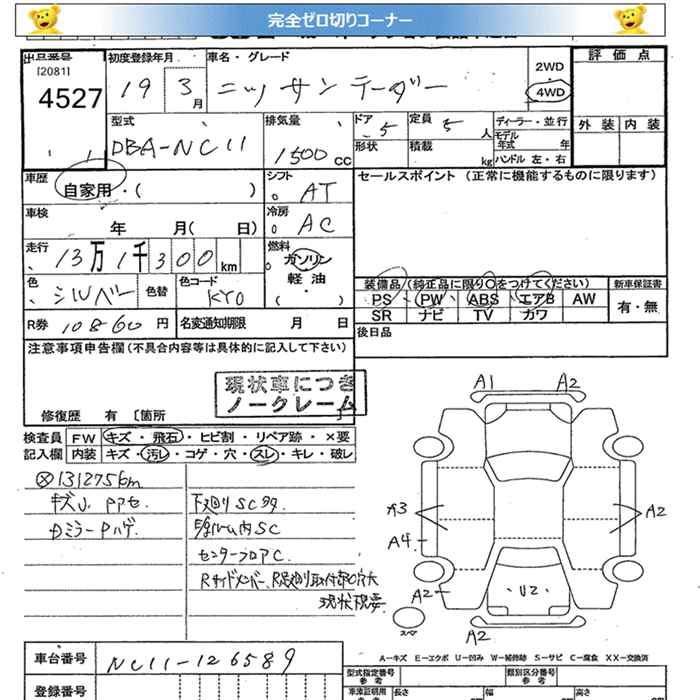 完全ゼロ切りコーナー
出品番号 初度登録年月 車名・グレード 2WD 評価点
[2081]
4527 19 3月 ニッサンテーダー 4WD
型式 排気量 ドア 定員 ディーラー・並行 外装 内装
DBA-NC11 1500cc 5 5人 モデル年式 年
形状 積載 kg ハンドル 左・右
車歴 シフト セールスポイント (正常に機能するものに限ります)
自家用・( ) AT
車検 冷房
年 月( 日) AC
走行 燃料
13万1千300km ガソリン
軽油
色 色替 色コード 装備品/(純正品に限り○をつけてください) 新車保証書
シルバー KY0 ( ) PS PW ABS エアB AW 有・無
SR ナビ TV カワ
R券 10860円 名変通知期限 月 日 後日品
注意事項申告欄(不具合内容等は具体的に記入して下さい)
現状車につき
ノークレーム
修復歴 有 〔箇所
検査員 FW キズ・飛石・ヒビ割・リペア跡・×要
記入欄 内装 キズ・汚レ・コゲ・穴・スレ・キレ・破レ
A1 A2
131275km
キズU 下廻りSC多
カミラー
ルーム内SC
センターフロアC
現状
A3 A2
A4
A2 U2
スペ A2
A-キズ E-エクボ U-凹み W-補修跡 S-サビ C-腐食 XX-交換済
車台番号 NC11-126589
型式指定番号 参考 類別区分番号 参考
登録番号 車庫証明用 参考 長さ 幅 高さ